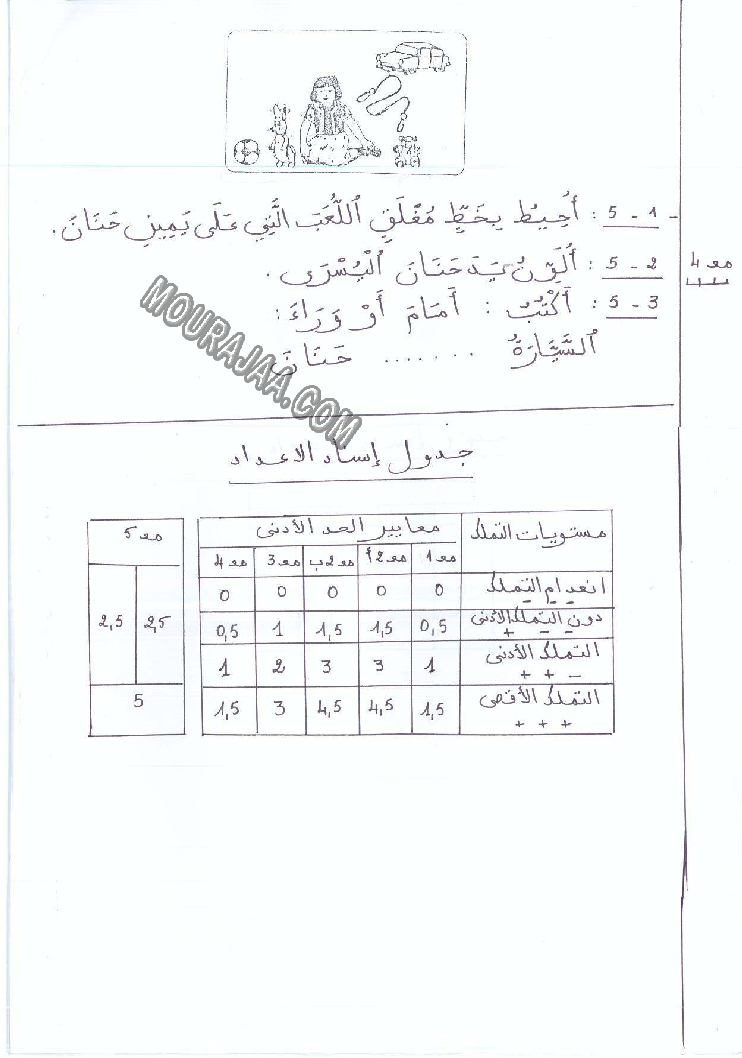 5 - 1 : أُحِيطُ بِخَطٍّ مُغْلَقٍ اَللُّعَبَ الَّتِي عَلَى يَمِينِ حَنَانَ.
مع 4
5 - 2 : أُلَوِّنُ يَدَ حَنَانَ الْيُسْرَى.
5 - 3 : أَكْتُبُ : أَمَامَ أَوْ وَرَاءَ :
اَلسَّيَّارَةُ ....... حَنَانَ
MOURAJAA.COM
جدول إسناد الاعداد
مستويات التملك معايير الحد الأدنى مع 5
مع 1 مع 2أ مع 2ب مع 3 مع 4
انعدام التملك 0 0 0 0 0
- - -
دون التملك الأدنى 0,5 1,5 1,5 1 0,5 2,5 2,5
+ - -
التملك الأدنى 1 3 3 2 1
+ + -
التملك الأقصى 1,5 4,5 4,5 3 1,5 5
+ + +